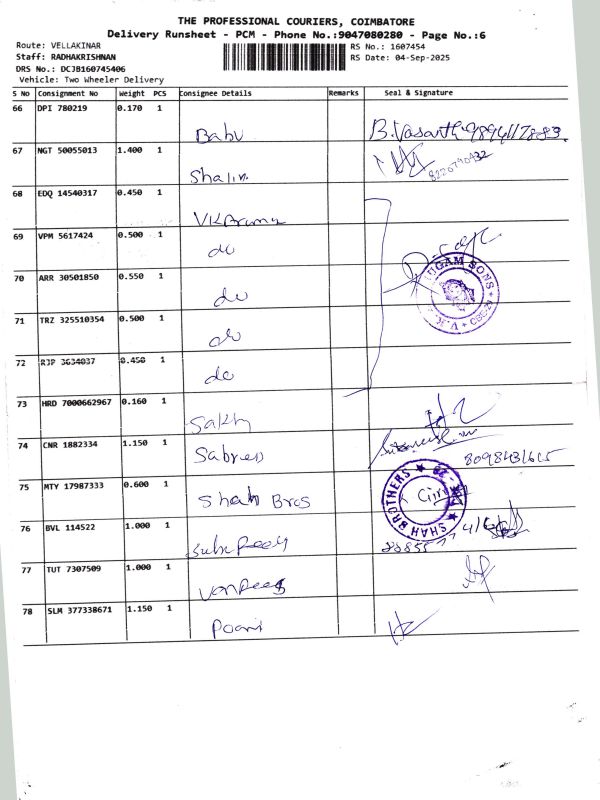 THE PROFESSIONAL COURIERS, COIMBATORE
Delivery Runsheet - PCM - Phone No.:9047080280 - Page No.:6
Route: VELLAKINAR
RS No.: 1607454
Staff: RADHAKRISHNAN
RS Date: 04-Sep-2025
DRS No.: DCJB160745406
Vehicle: Two Wheeler Delivery
S No Consignment No Weight PCS Consignee Details Remarks Seal & Signature
66 DPI 780219 0.170 1
Babu B.Vasanth 9894117883
67 NGT 50055013 1.400 1
Shalin 8220790432
68 EDQ 14540317 0.450 1
69 VPM 5617424 0.500 1
do
70 ARR 30501850 0.550 1
do
71 TRZ 325510354 0.500 1
do
72 RJP 3634037 0.450 1
do
73 HRD 7000662967 0.160 1
Sakhy
74 CNR 1882334 1.150 1
Sabrees 8098431615
75 MTY 17987333 0.600 1
Shah Bros
SHAH BROTHERS
76 BVL 114522 1.000 1
77 TUT 7307509 1.000 1
78 SLM 377338671 1.150 1